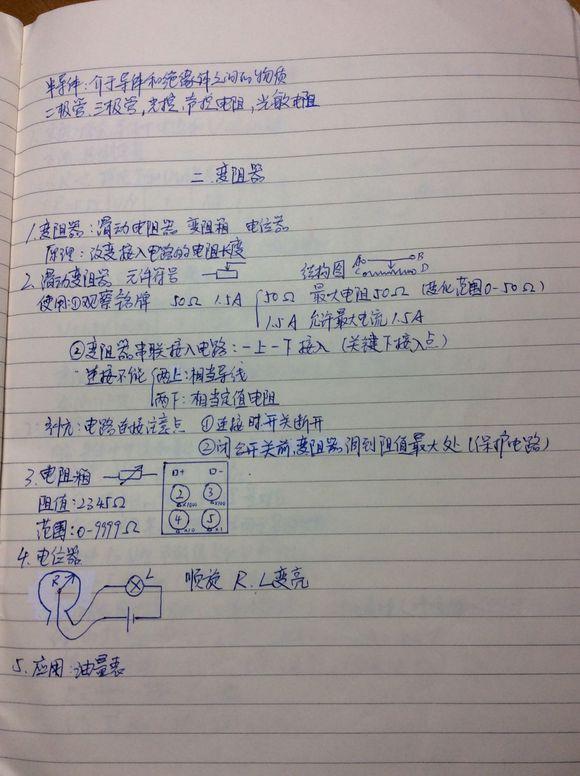 半导体：介于导体和绝缘体之间的物质
二极管，三极管，光控，声控电阻，光敏电阻
二 变阻器
1. 变阻器：滑动电阻器 变阻箱 电位器
原理：改变接入电路的电阻长度
2. 滑动变阻器 元件符号 结构图 A B C D
使用：①观察铭牌 50Ω 1.5A 50Ω 最大电阻50Ω（变化范围0-50Ω）
1.5A 允许最大电流1.5A
②变阻器串联接入电路：一上一下接入（关键下接入点）
连接不能 两上：相当导线
两下：相当定值电阻
补充：电路连接注意点 ①连接时开关断开
②闭合开关前，变阻器调到阻值最大处（保护电路）
3. 电阻箱
阻值：2345Ω
范围：0-9999Ω
+ -
2 ×1000 3 ×100
4 ×10 5 ×1
4. 电位器
R L 顺旋 R. L变亮
5. 应用：油量表